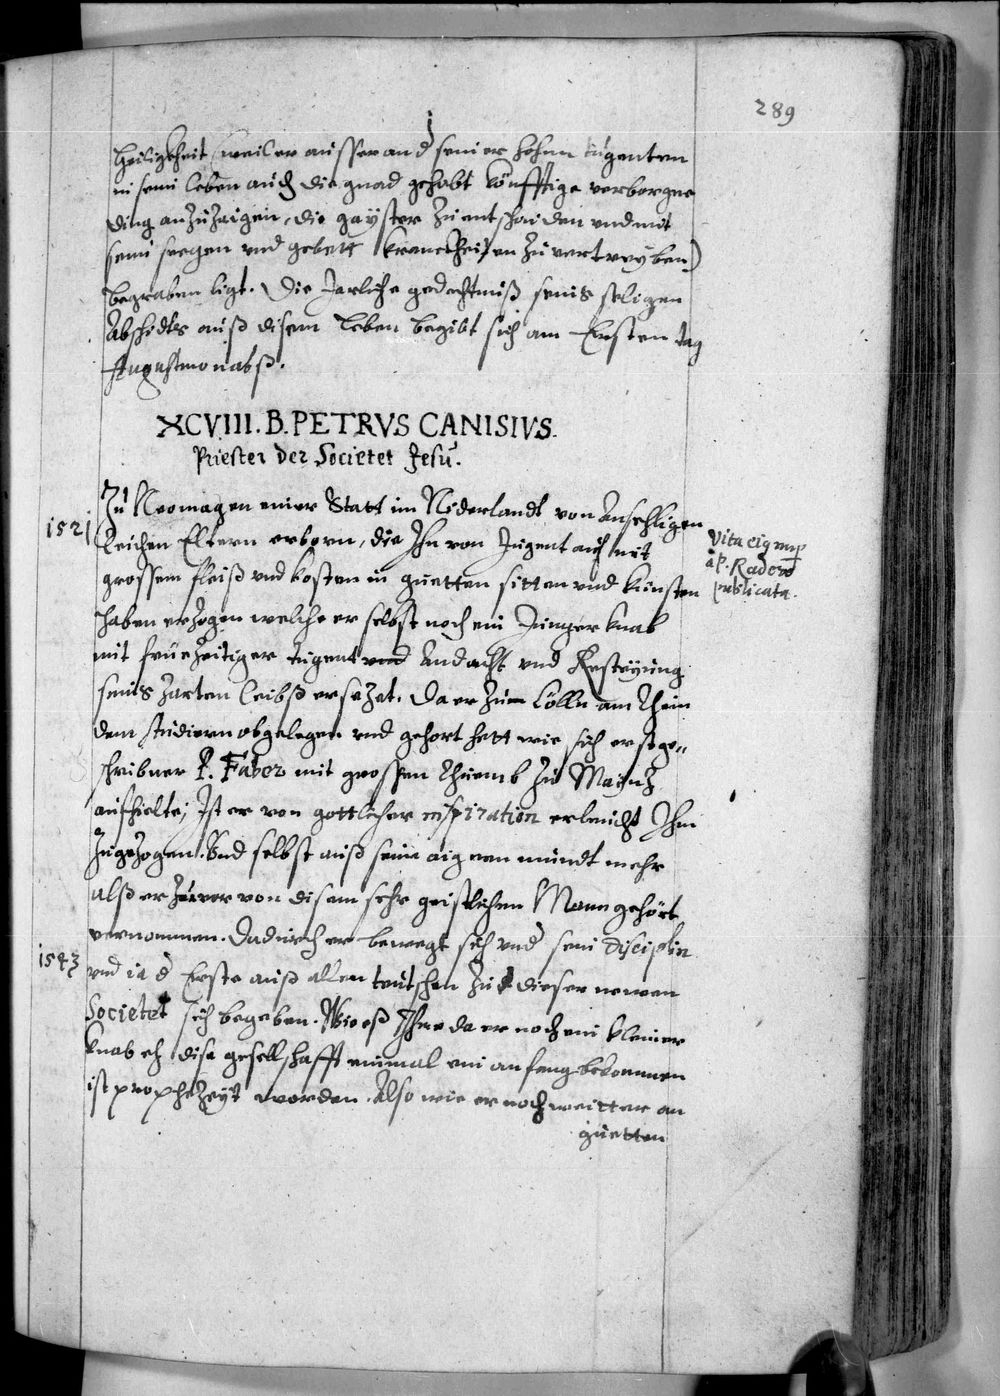 289
heiligkheit (weil er ausser and seiner hohen tugenten
in sein leben auch die gnad gehabt künfftige verborgne
ding anzuzaigen, die gayster zu entschaiden und mit
sein seegen und gebett kranckheiten zu vertreyben)
begraben ligt. Die Jarliche gedechtniß seines seligen
Abschidts auß disem leben begibt sich am Ersten tag
Augustmonabß.
XCVIII. B. PETRVS CANISIVS.
Priester der Societet Jesu.
1521
Zu Neomagen einer Statt im Niderlandt von Ansehligen
Reichen Eltern erborn, die Ihn von Jugent auch mit
grossem fleiß und kosten in guetten sitten und künsten
haben erzogen welche er selbst noch ein Junger knab
mit früezeitiger tugent und Andacht und Kesteyung
seines zarten leibß ersezet. Da er zum Cölln am Rhein
dem studiern obgelegen und gehort hett wie sich erstge-
schribner P. Faber mit grossem Rhuemb zu Maynz
aufhielte, Ist er von gottlicher inspiration erleucht Ihm
zugezogen. Und selbst auß seim aignen mundt mehr
alß er zuvor von disem sehr geistlichen Mann gehört
vernommen. Dadurch er bewegt sich und sein disciplin
1543
und ia d Erste auß allen teutschen zu dieser newen
Societet sich begeben. Wie eß Ihme da er noch ein kleiner
knab eh dise gesellschafft einmal ein anfang bekommen
ist prophezeyt worden. Also wie er noch weitter an
guetten
Vita eig
a P. Radero
publicata.